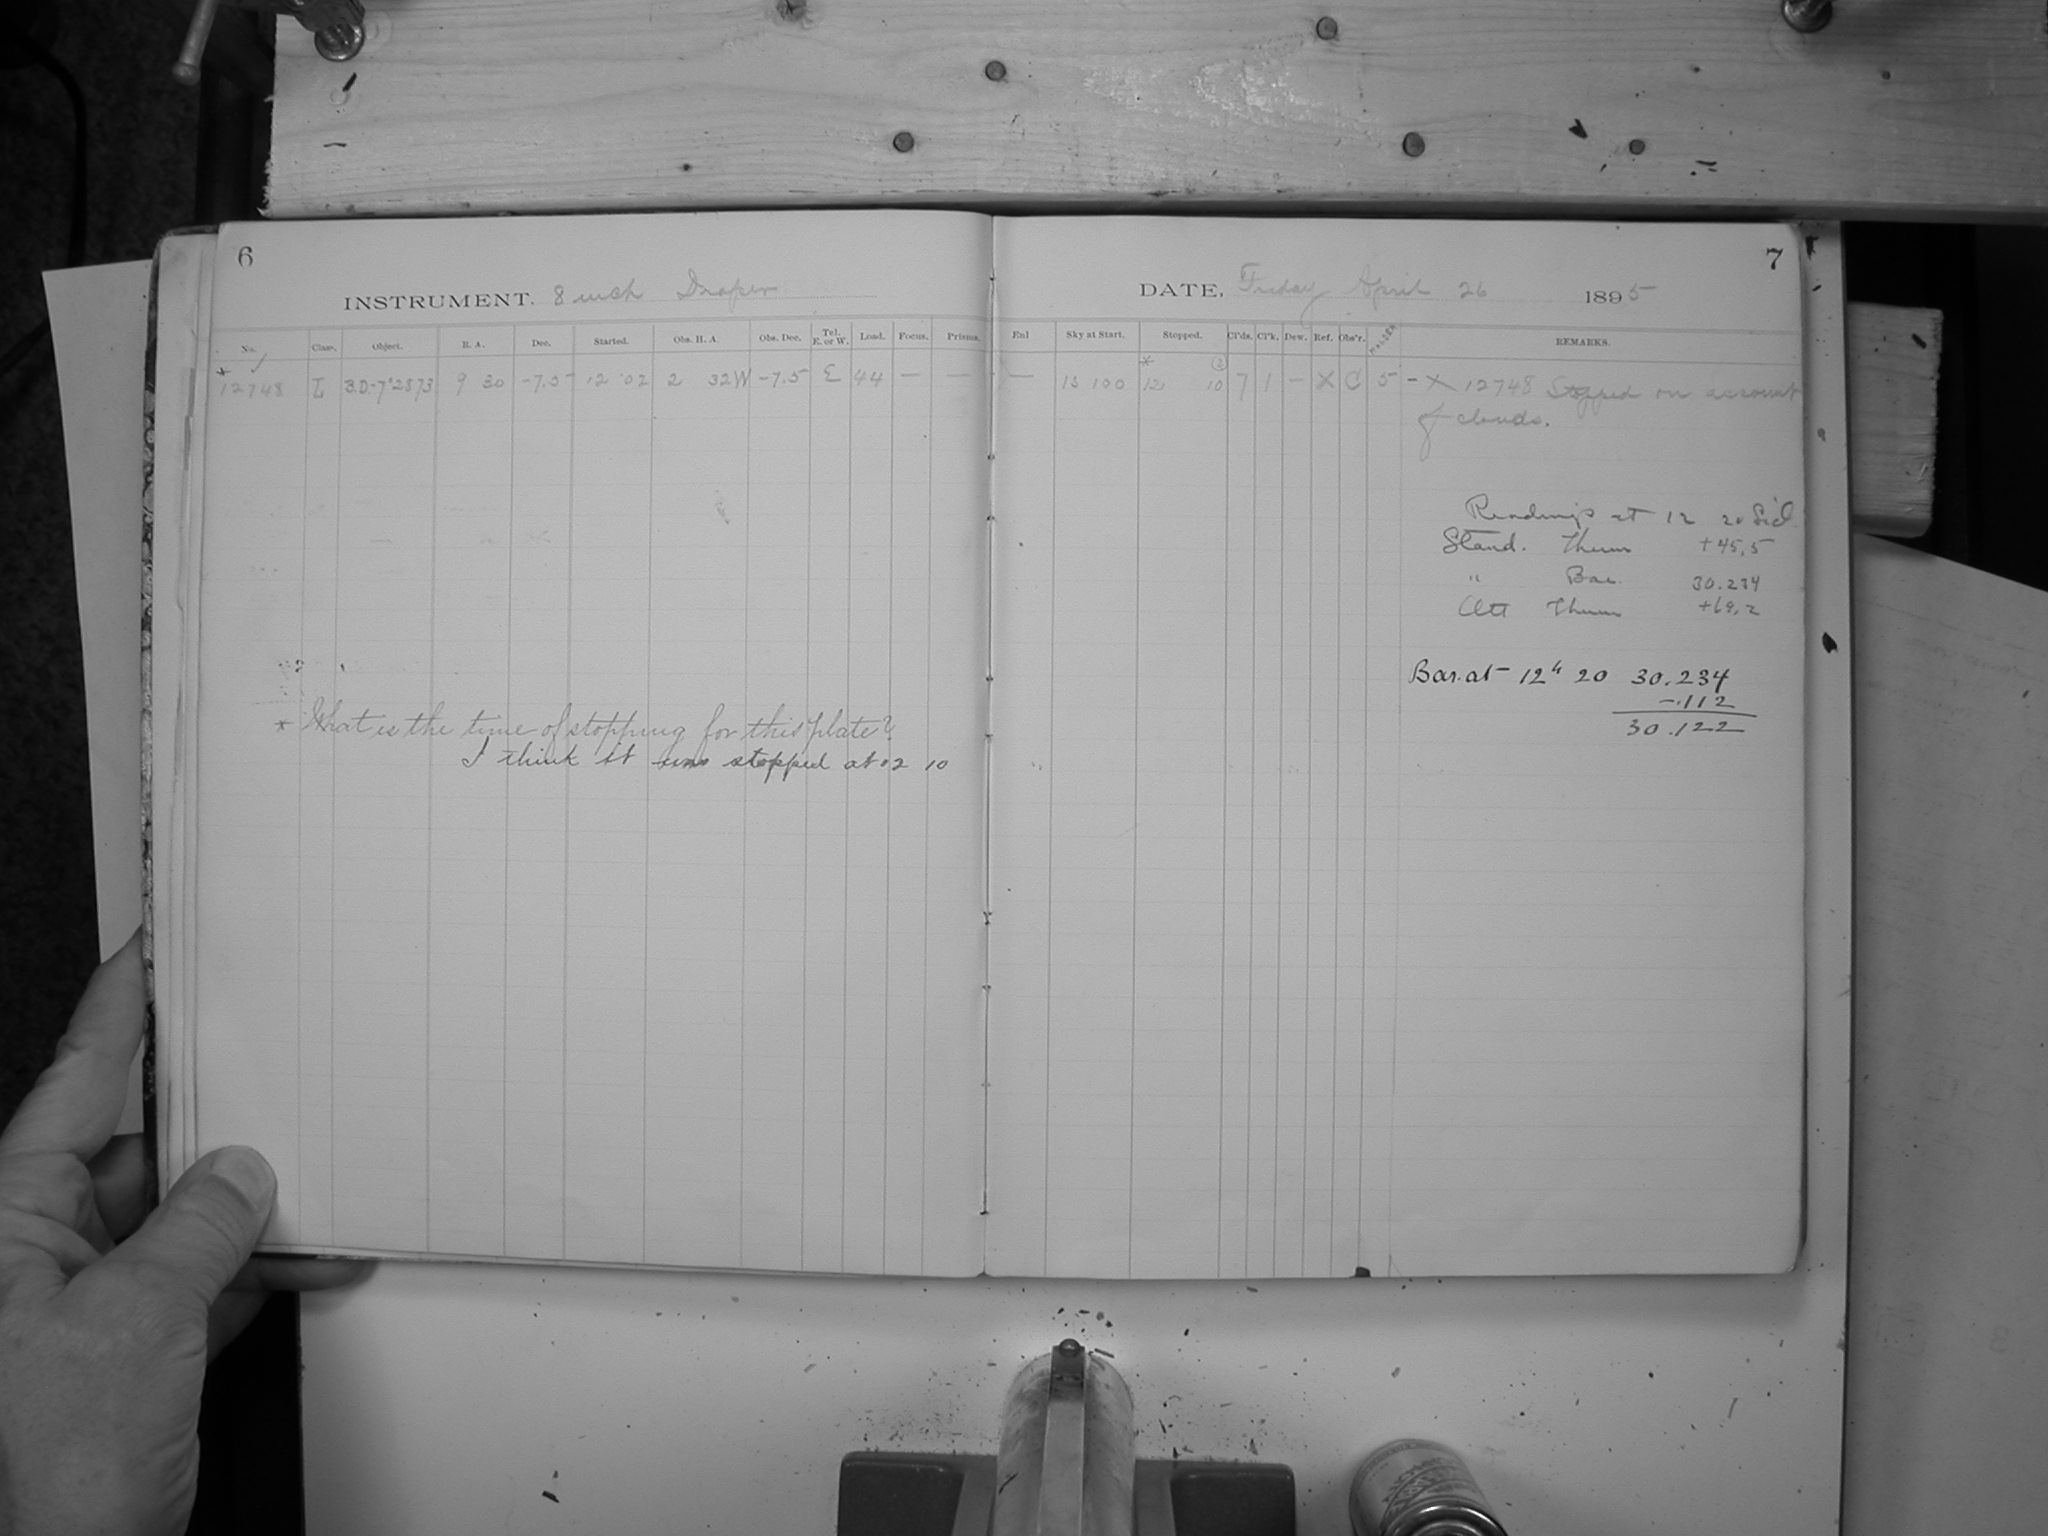 6
INSTRUMENT. 8 inch Draper
No. Class. Object. R. A. Dec. Started. Obs. H. A. Obs. Dec. Tel. E. or W. Load. Focus. Prisms.
* 12748 L B.D.-7°2873 9 30 -7.5 12 02 2 32W -7.5 E 44 — —
* What is the time of stopping for this plate?
I think it was stopped at 12 10
7
DATE, Friday April 26 1895
Enl Sky at Start. Stopped. Cl'ds. Cl'k. Dew. Ref. Obs'r. REMARKS.
— 1s 100 * 12 10 (2) 7 1 — X C 5 - X 12748 Stopped on account
of clouds.
Readings at 12 20 Sid.
Stand. Therm +45.5
" Bar. 30.234
Att Therm +69.2
Bar. at 12h 20 30.234
-.112
30.122